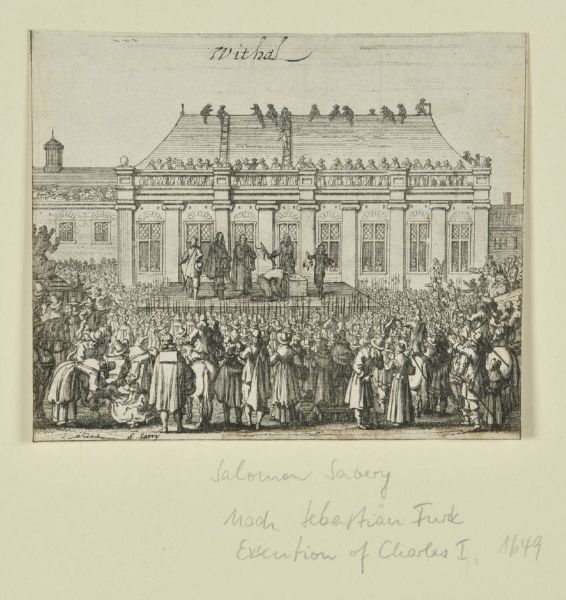 Withal
S. Savry
Salomon Savery
nach Sebastian Furk
Execution of Charles I, 1649